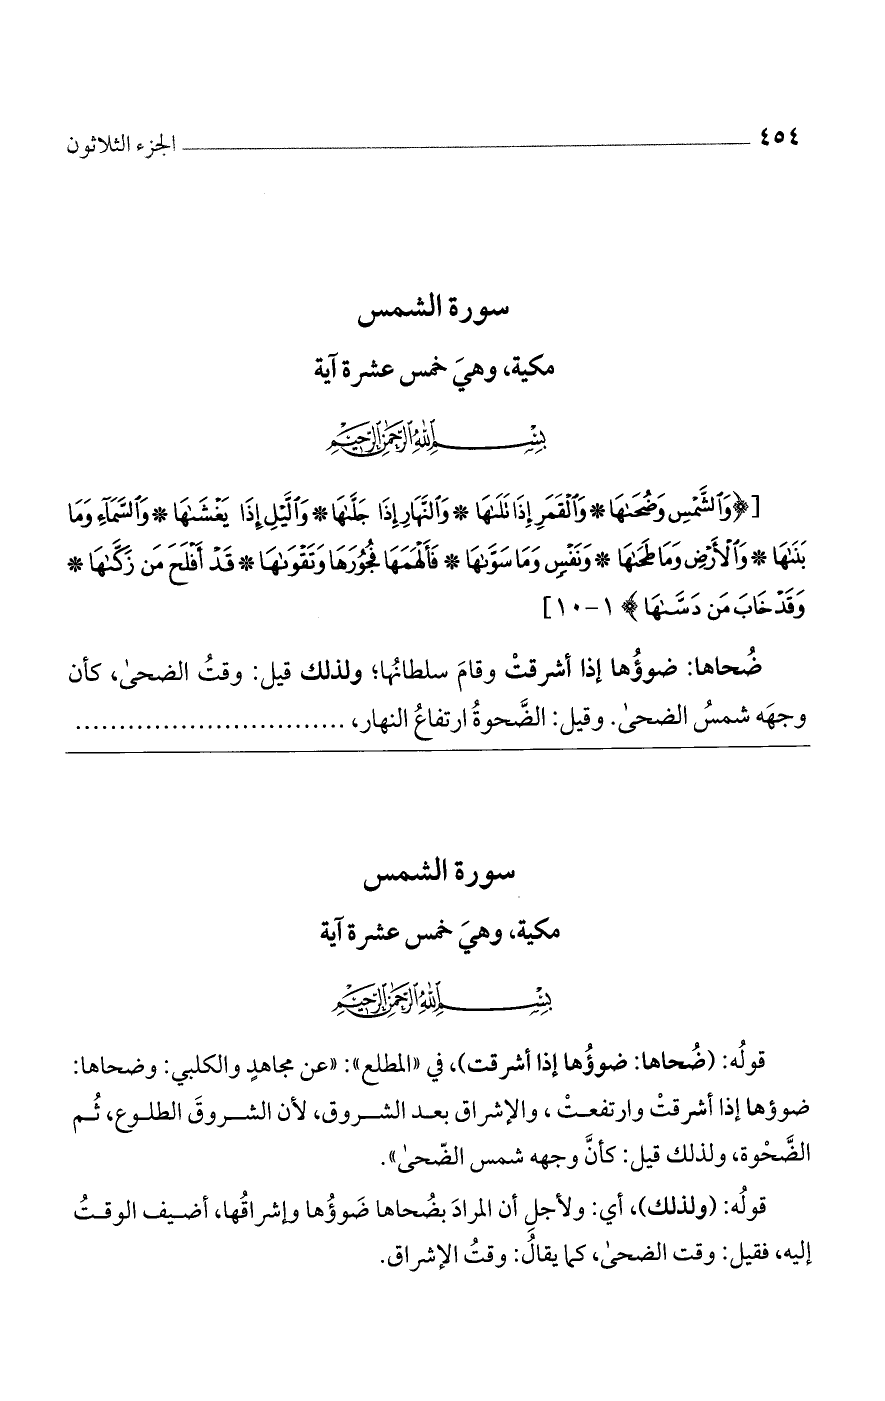 ٤٥٤ الجزء الثلاثون
سورة الشمس
مكية، وهيَ خمس عشرة آية
بِسْمِ اللَّهِ الرَّحْمَٰنِ الرَّحِيمِ
[﴿وَٱلشَّمْسِ وَضُحَىٰهَا * وَٱلْقَمَرِ إِذَا تَلَىٰهَا * وَٱلنَّهَارِ إِذَا جَلَّىٰهَا * وَٱلَّيْلِ إِذَا يَغْشَىٰهَا * وَٱلسَّمَآءِ وَمَا
بَنَىٰهَا * وَٱلْأَرْضِ وَمَا طَحَىٰهَا * وَنَفْسٍ وَمَا سَوَّىٰهَا * فَأَلْهَمَهَا فُجُورَهَا وَتَقْوَىٰهَا * قَدْ أَفْلَحَ مَن زَكَّىٰهَا *
وَقَدْ خَابَ مَن دَسَّىٰهَا﴾ ١-١٠]
ضُحاها: ضوؤُها إذا أشرقتْ وقامَ سلطانُها؛ ولذلك قيل: وقتُ الضحىٰ، كأن
وجهَه شمسُ الضحىٰ. وقيل: الضَّحوةُ ارتفاعُ النهار، ...............................
سورة الشمس
مكية، وهيَ خمس عشرة آية
بِسْمِ اللَّهِ الرَّحْمَٰنِ الرَّحِيمِ
قولُه: (ضُحاها: ضوؤُها إذا أشرقت)، في «المطلع»: «عن مجاهدٍ والكلبي: وضحاها:
ضوؤها إذا أشرقتْ وارتفعـتْ، والإشراق بعـد الشـــروق، لأن الشـــروقَ الطلـوع، ثُـم
الضَّحْوة، ولذلك قيل: كأنَّ وجهه شمس الضّحىٰ».
قولُه: (ولذلك)، أي: ولأجلِ أن المرادَ بضُحاها ضَوؤُها وإشراقُها، أضـيف الوقـتُ
إليه، فقيل: وقت الضحىٰ، كما يقالُ: وقتُ الإشراق.